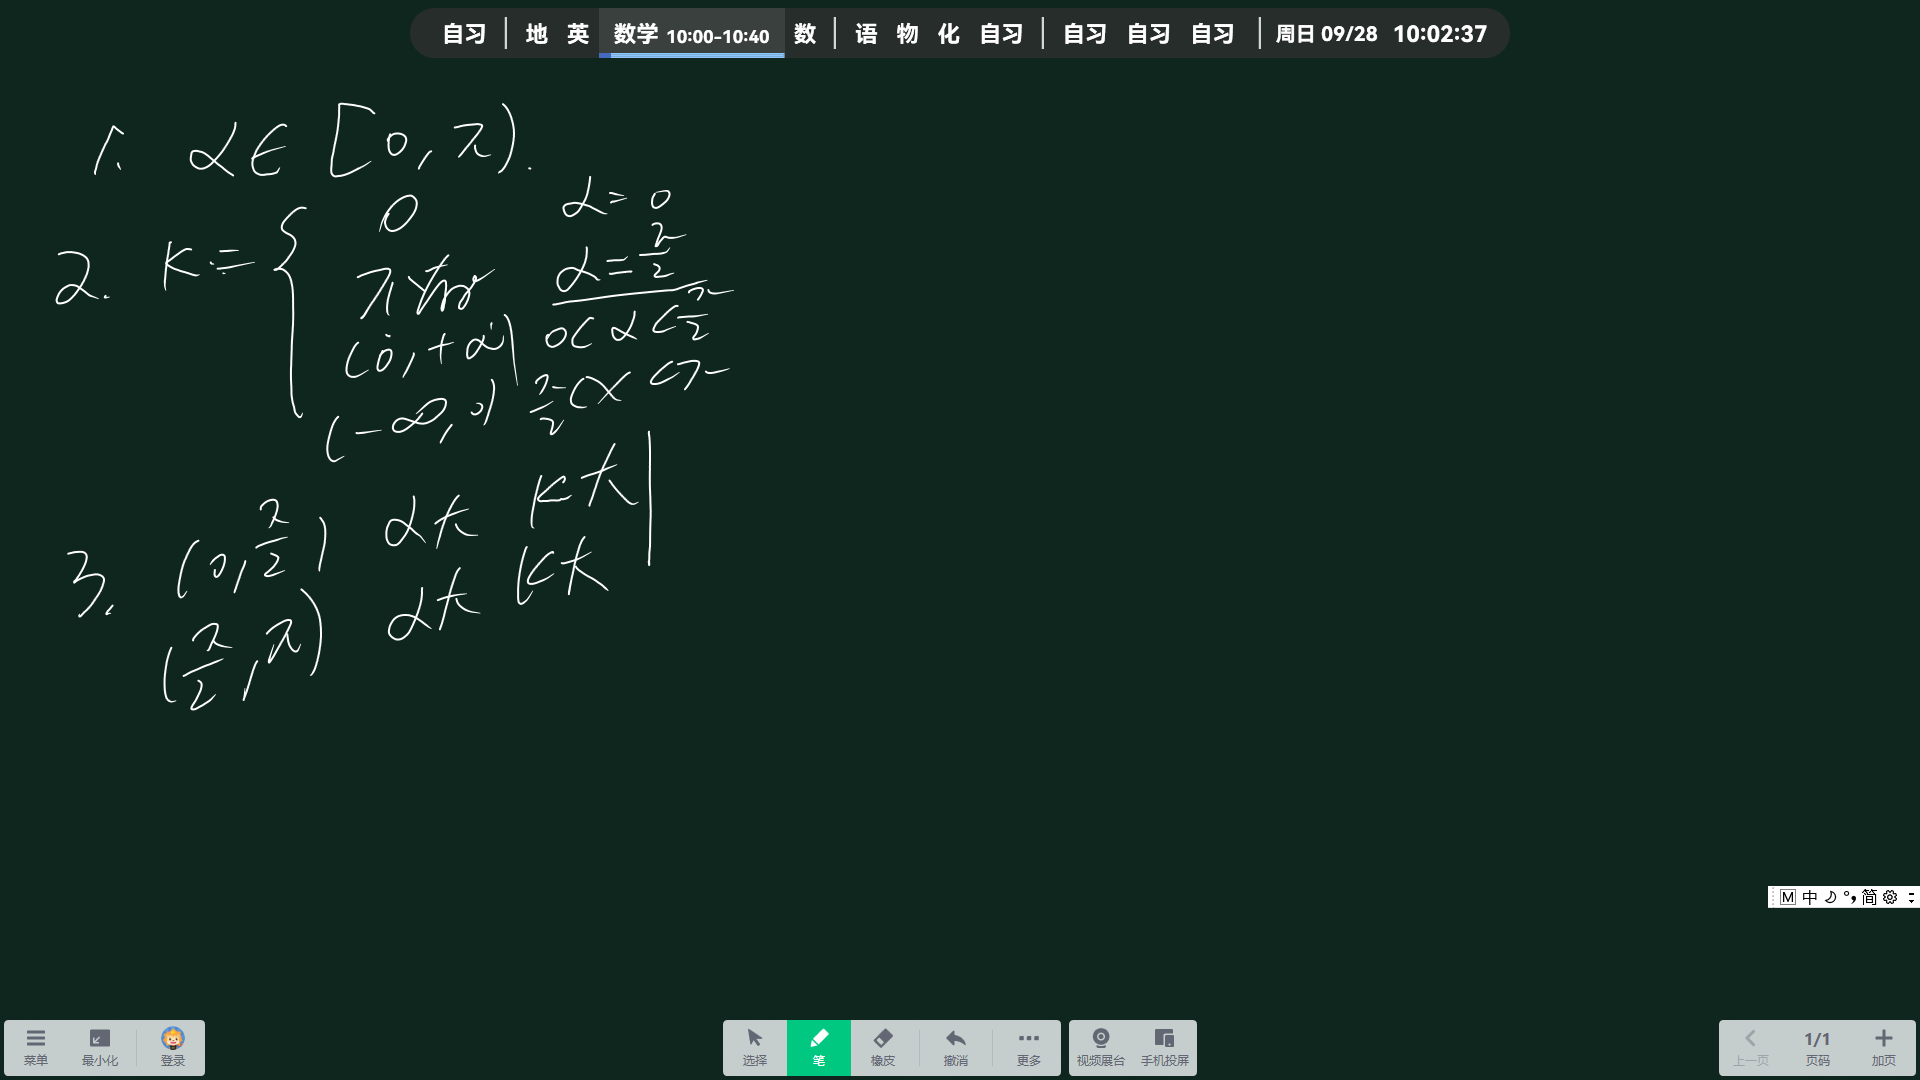 自习 | 地 英 数学 10:00-10:40 数 | 语 物 化 自习 | 自习 自习 自习 | 周日 09/28 10:02:37
1. α∈[0,π).
2. k= { 0 α=0
不存在 α=π/2
(0,+∞) 0<α<π/2
(-∞,0) π/2<α<π
3. (0,π/2) α大 k大
(π/2,π) α大 k大
M 中 简
菜单 最小化 登录 选择 笔 橡皮 撤消 更多 视频展台 手机投屏 上一页 1/1 页码 加页